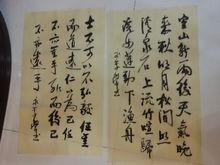 空山新雨後天氣晚
來秋明月松間照
清泉石上流竹喧歸
浣女蓮動下漁舟
士不可以不弘毅任重
而道遠仁以為己任
不亦重乎死而後已
不亦遠乎